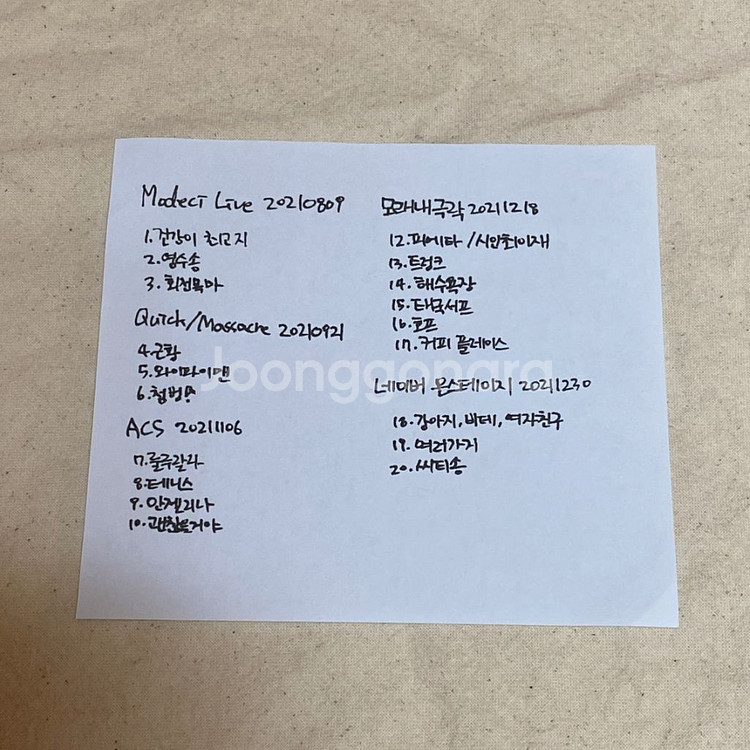 Modeci Live 20210809
1. 건강이 최고지
2. 영수송
3. 회전목마
Quick/Massacre 20210921
4. 근황
5. 와이파이맨
6. 첨벙!
ACS 20211106
7. 룰루랄라
8. 테니스
9. 안젤리나
10. 괜찮을거야
모래내극락 20211218
12. 피에타 / 시인최이재
13. 트렁크
14. 해수욕장
15. 태국서프
16. 호프
17. 커피 플레이스
네이버 온스테이지 20211230
18. 강아지, 바데, 여자친구
19. 여러가지
20. 씨티송
Joonggonara